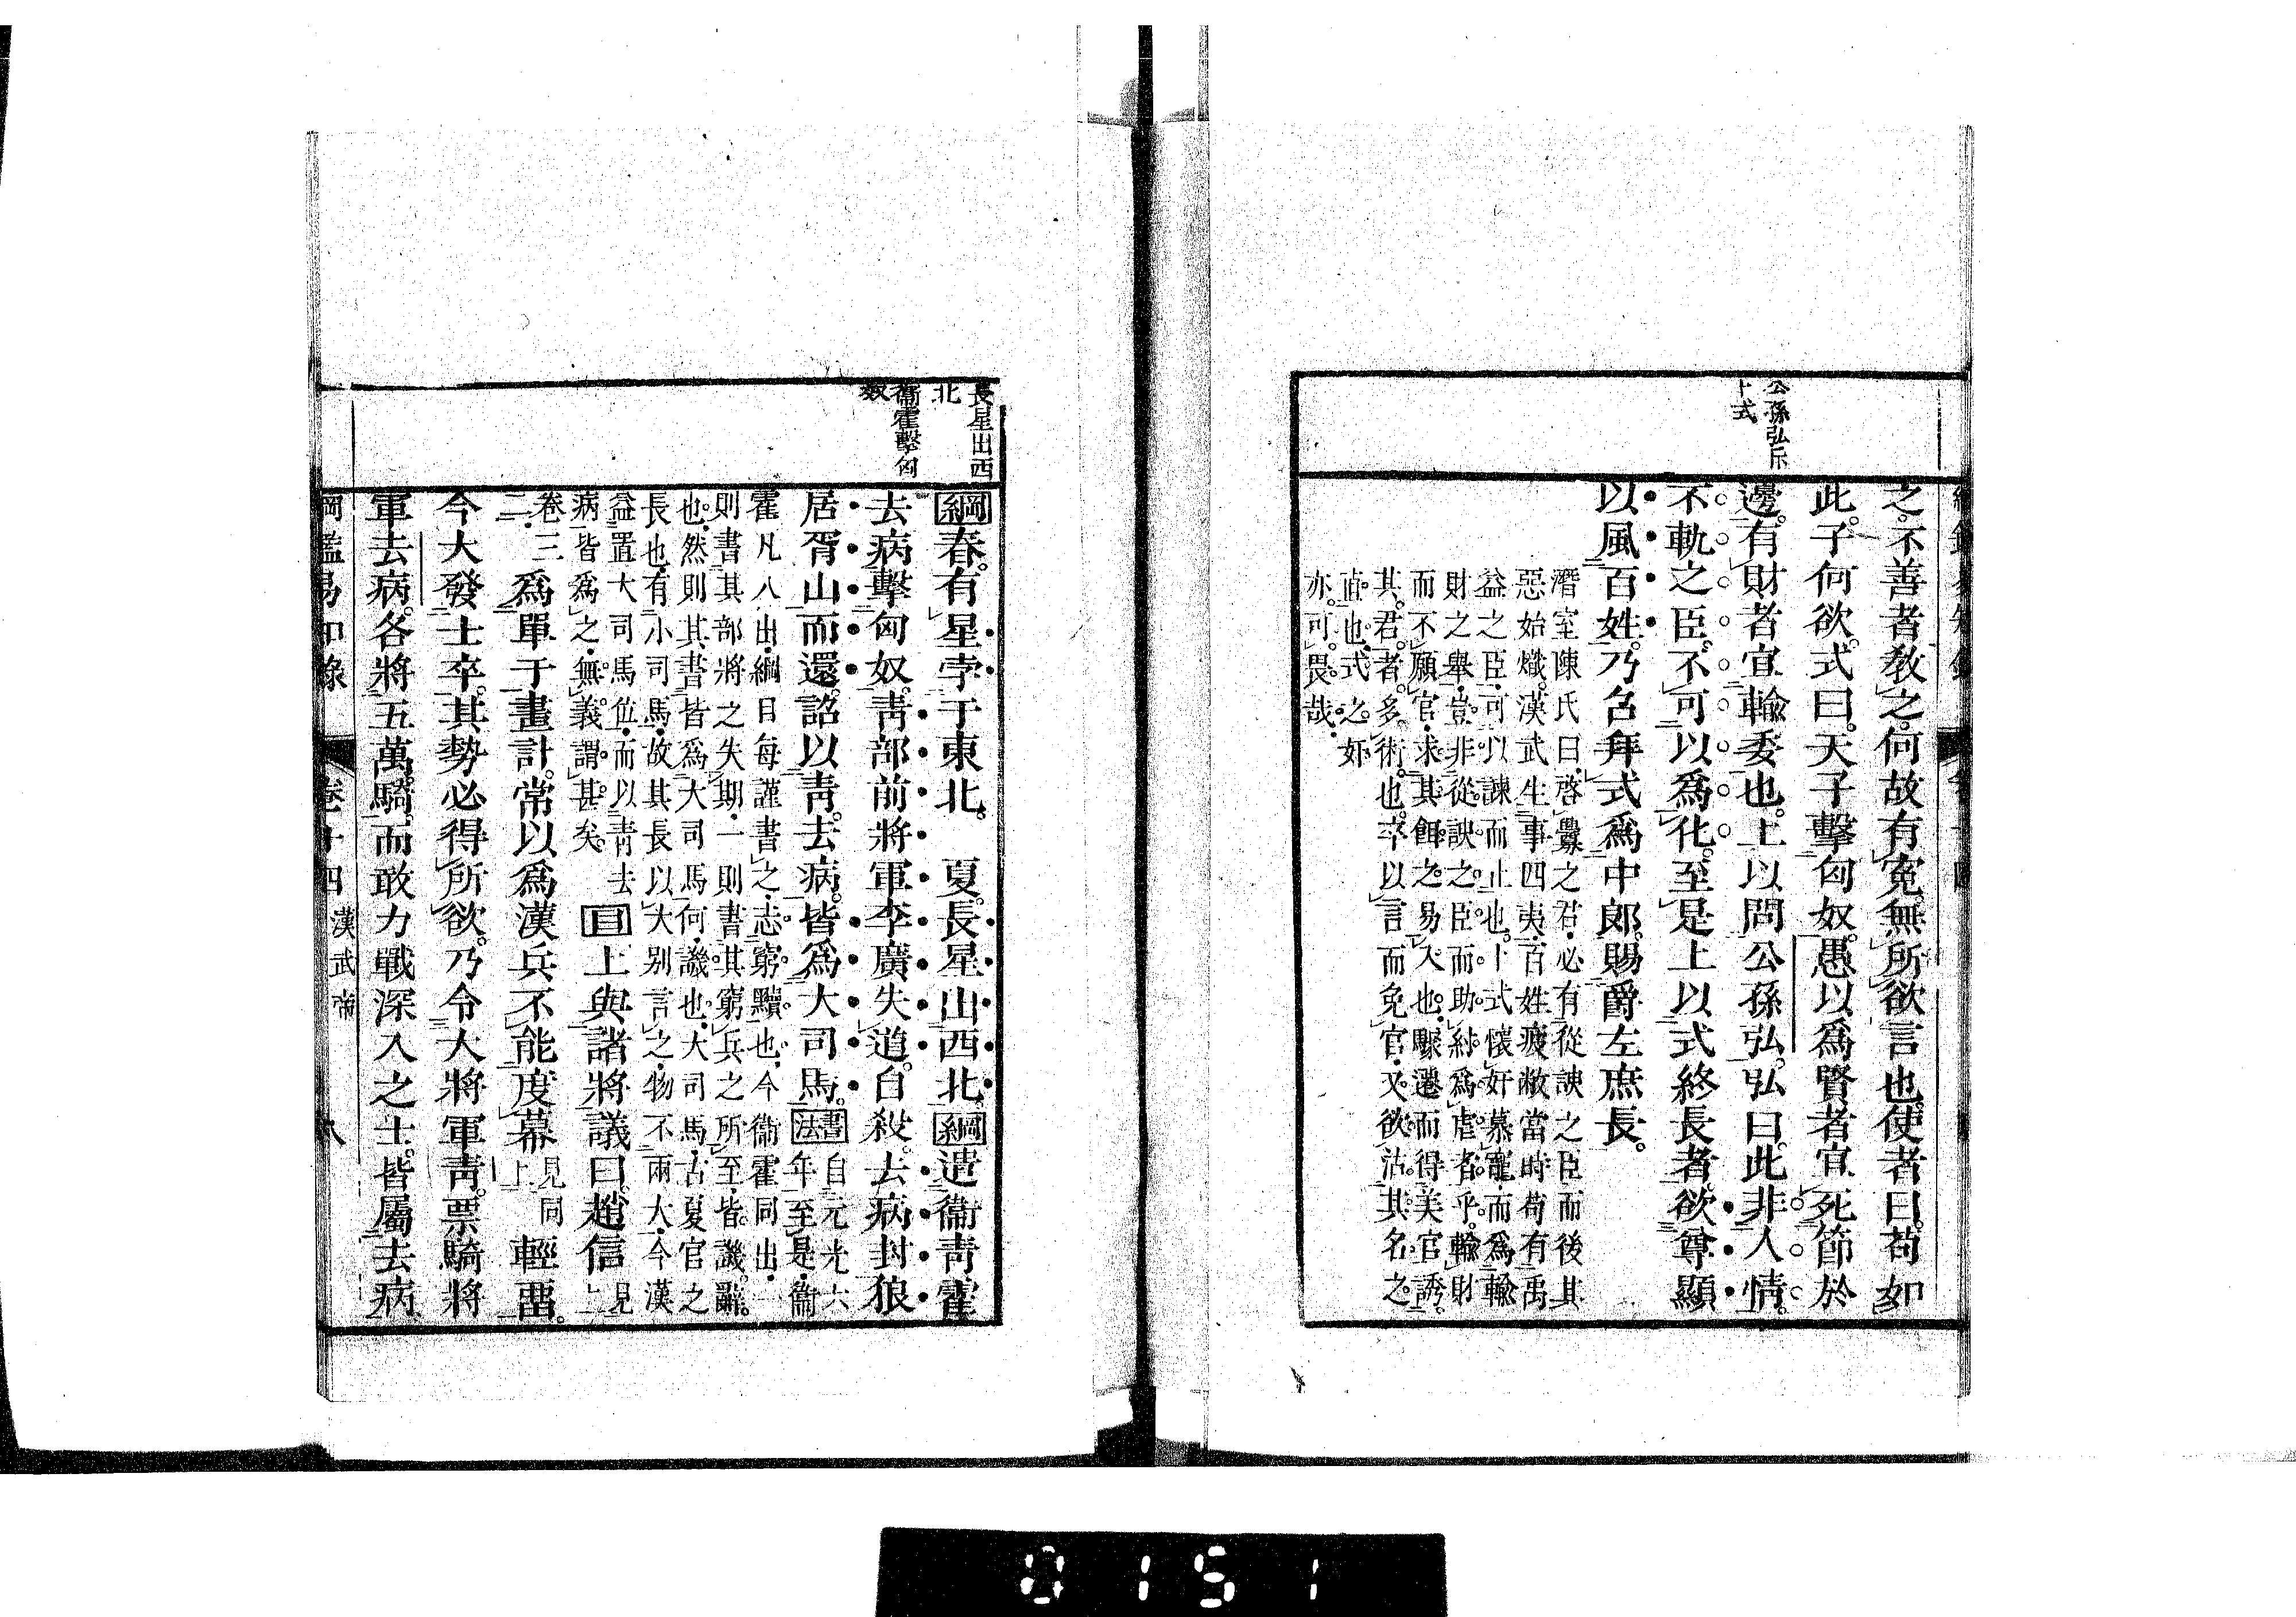 公孫弘斥
卜式
之。不善者教之。何故有寃。無所欲言也。使者曰。苟如
此。子何欲。式曰。天子擊匈奴。愚以爲賢者宜死節於
邊。有財者宜輸委也。上以問公孫弘。弘曰。此非人情。
不軌之臣。不可以爲化。至是上以式終長者。欲尊顯
以風百姓。乃召拜式爲中郎。賜爵左庶長。
潛室陳氏曰。啓釁之君。必有從諛之臣而後其
惡始熾。漢武生事四夷。百姓疲敝當時苟有禹
益之臣。可以諫而止也。卜式懷奸慕寵。而爲輸
財之舉。豈非從諛之臣。而助紂爲虐者乎。輸財
而不願官。求其餌之易入也。驟遷而得美官誘。
其君者多術也。卒以言而免官。又欲沽其名之
直也。式之奸
亦可畏哉。
長星出西
北
衞霍擊匈
奴
綱春。有星孛于東北。 夏。長星出西北。綱遣衞青霍
去病擊匈奴。青部前將軍李廣失道。自殺。去病封狼
居胥山而還。詔以青。去病。皆爲大司馬。書法自元光六
年至是。衞
霍凡八出。綱目每謹書之。志窮黷也。今衞霍同出。一
則書其部將之失期。一則書其窮兵之所至。皆譏辭
也。然則其書皆爲大司馬何。譏也。大司馬。古夏官之
長也。有小司馬。故其長以大别言之。物不兩大。今漢
益置大司馬位。而以青去
病皆爲之。無義謂甚矣。目上與諸將議曰。趙信見上
卷三
二爲單于畫計。常以爲漢兵不能度幕見同
上輕畱。
今大發士卒。其勢必得所欲。乃令大將軍青。票騎將
軍去病。各將五萬騎。而敢力戰深入之士。皆屬去病。
綱鑑易知錄 卷十四 漢武帝 八